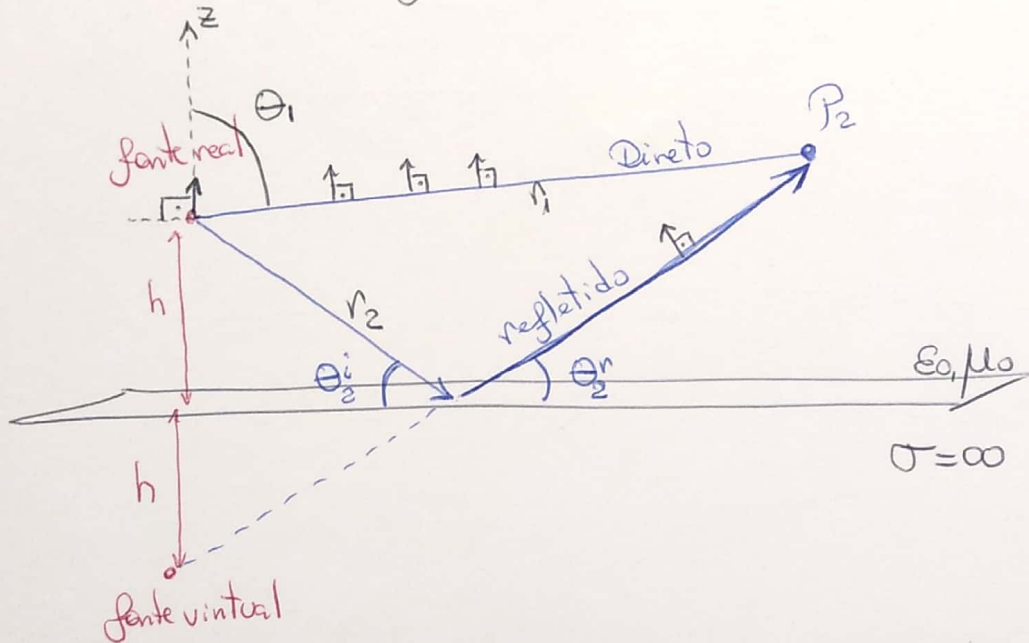 z
θ1
fonte real
Direto
P2
r1
h
r2
refletido
θ2^i
θ2^r
ε0, μ0
σ=∞
h
fonte virtual